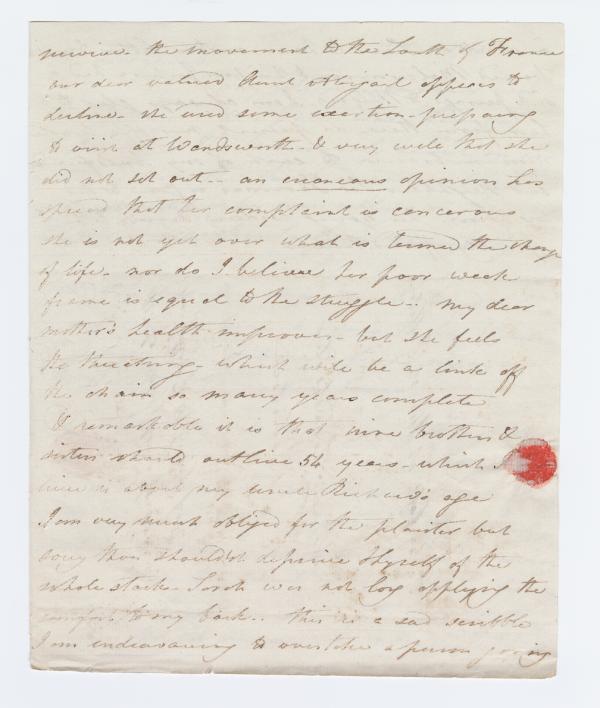 the movement to the South of France
our dear valued Aunt Abigail appears to
decline - she used some exertion - preparing
to visit at Wandsworth - & very well that she
did not set out - an erroneous opinion has
spread that her complaint is cancerous
she is not yet over what is termed the change
of life - nor do I believe her poor weak
frame is equal to the struggle - my dear
mother's health improves - but she feels
the - which will be a link off
the chain so many years complete
& remarkable it is that nine brothers &
sisters should outlive 54 years - which I
is about my uncle Richard's age
I am very much obliged for the plaister but
sorry thou shouldst deprive thyself of the
whole stock - Sarah was not long applying the
comfort to my back - this is a sad scribble
I am endeavouring to overtake a person going